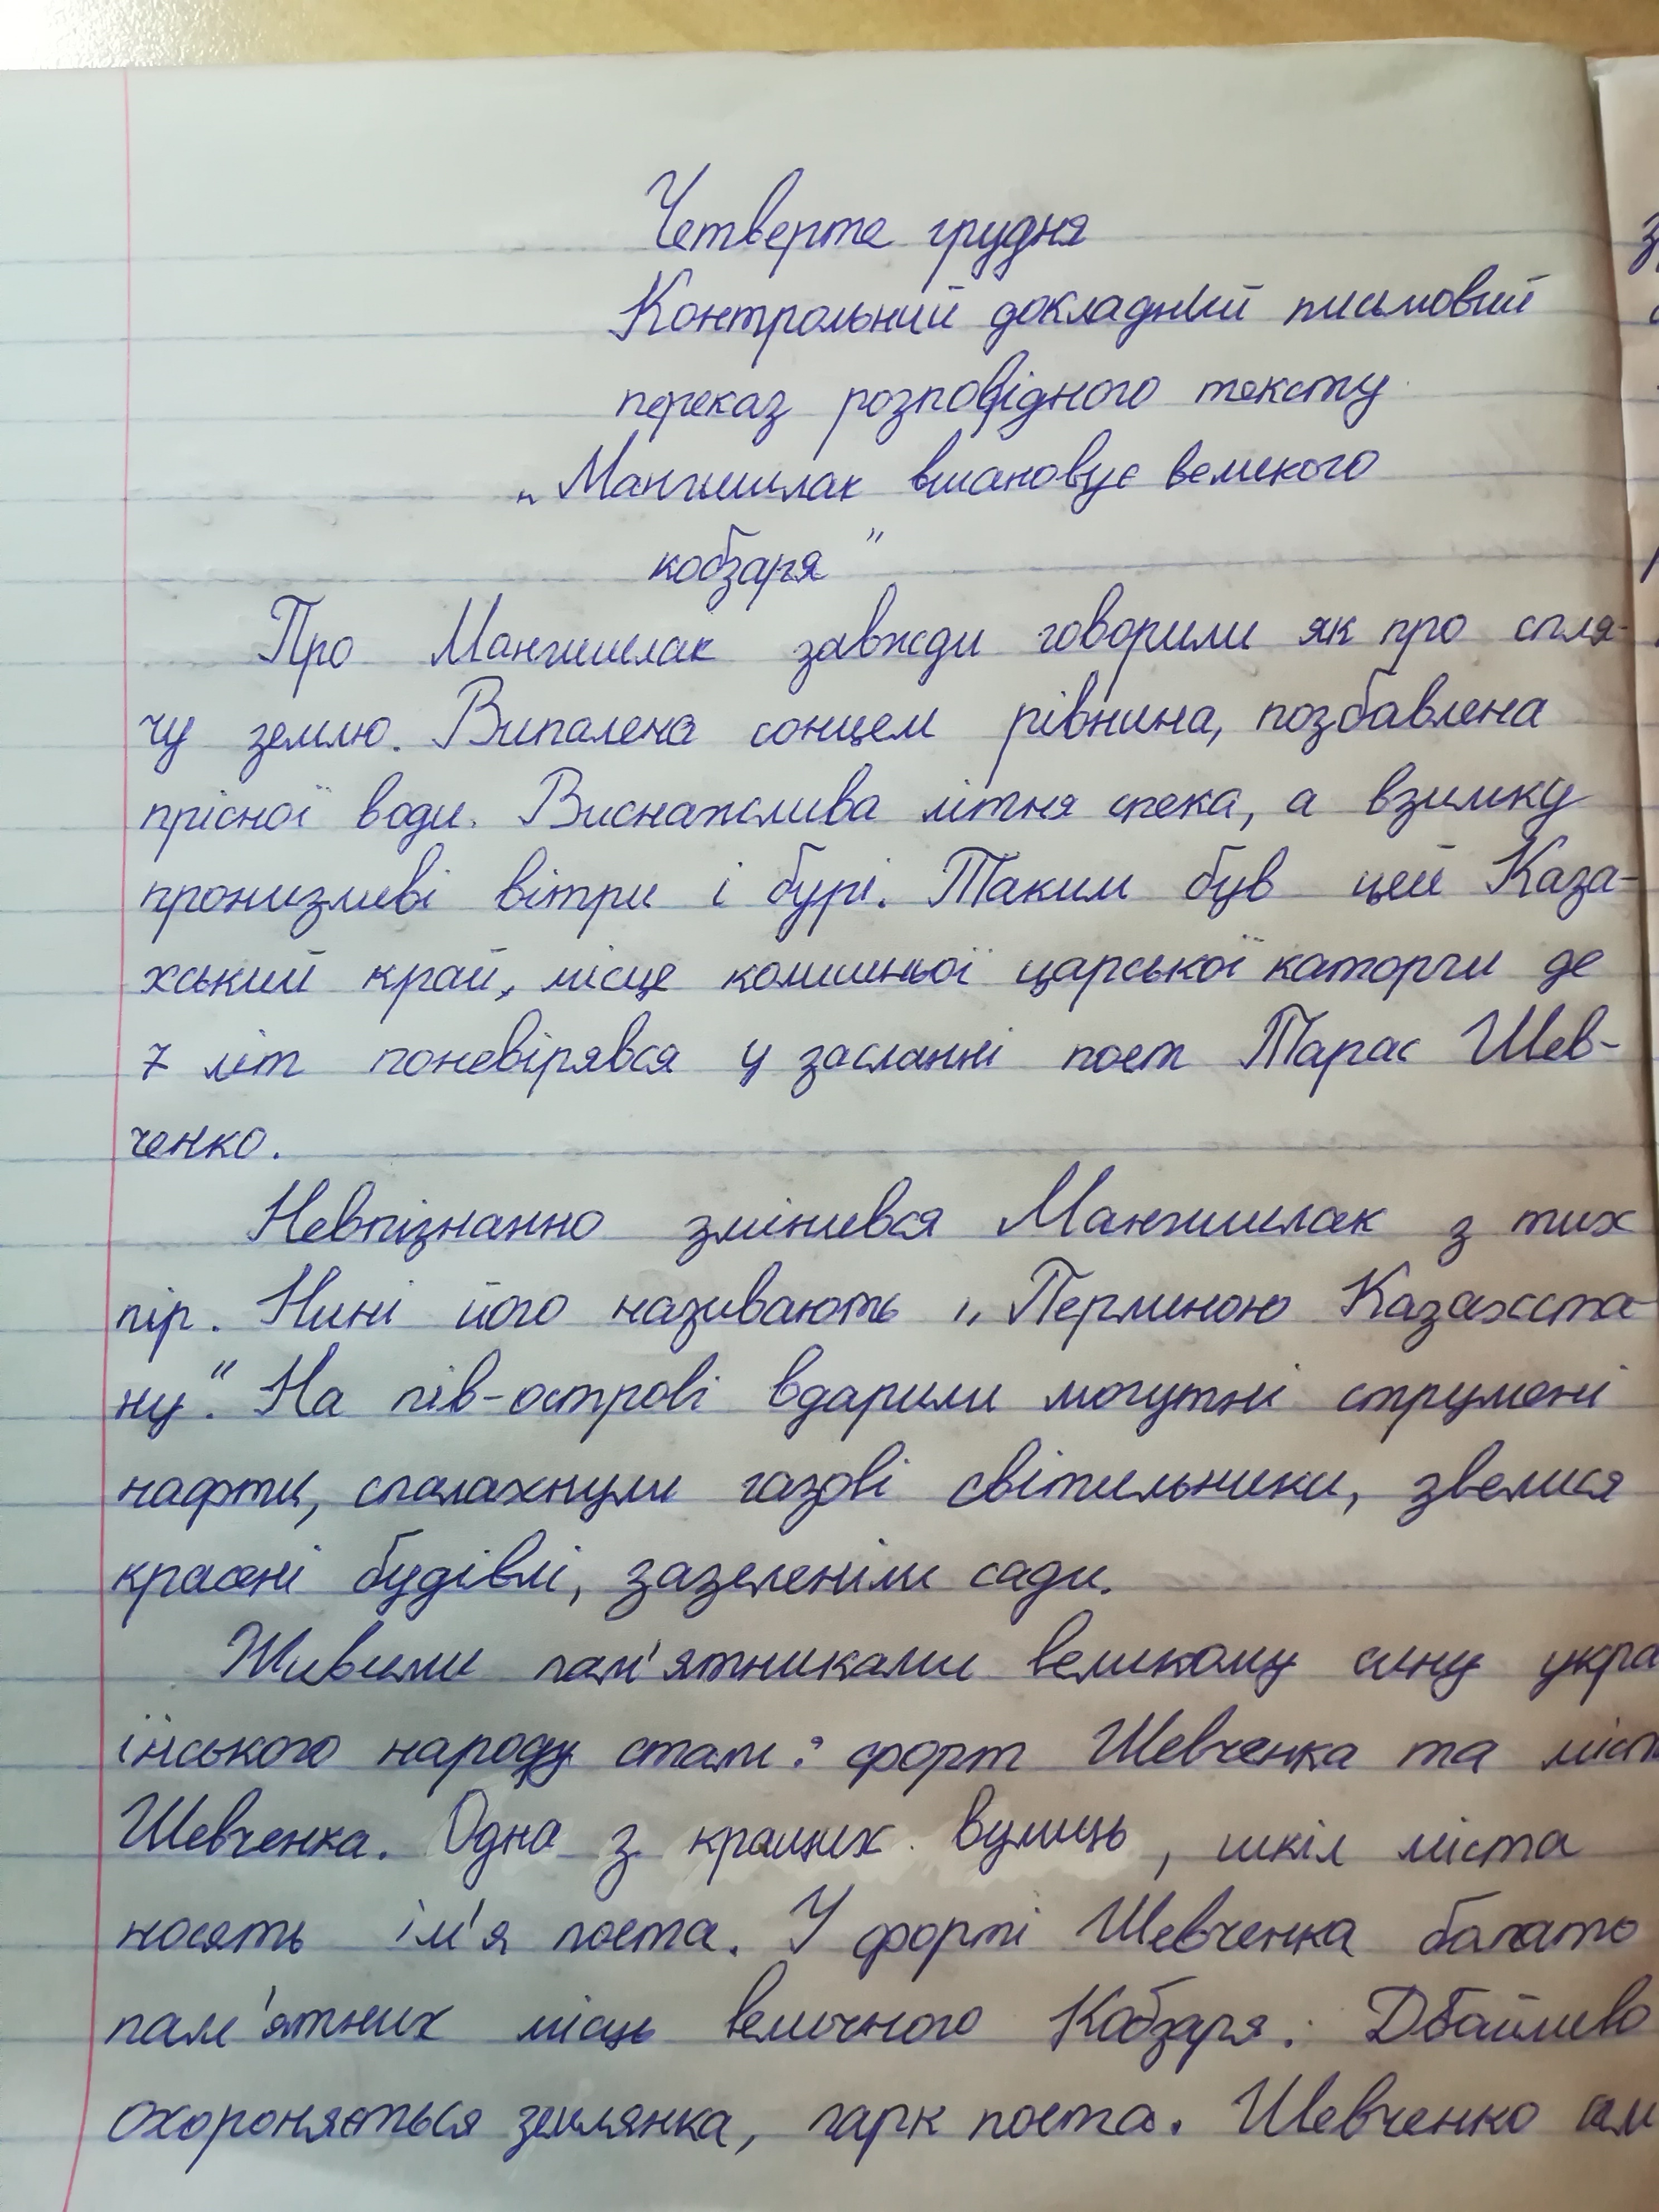 Четверте грудня
Контрольний докладний письмовий
переказ розповідного тексту
„Мангишлак вшановує великого
кобзаря"
Про Мангишлак завжди говорили як про спля-
чу землю. Випалена сонцем рівнина, позбавлена
прісної води. Виснажлива літня спека, а взимку
пронизливі вітри і бурі. Таким був цей Каза-
хський край, місце колишньої царської каторги де
7 літ поневірявся у засланні поет Тарас Шев-
ченко.
Невпізнанно змінився Мангишлак з тих
пір. Нині його називають „Перлиною Казахста-
ну". На пів-острові вдарили могутні струмені
нафти, спалахнули газові світильники, звелися
красені будівлі, зазеленіли сади.
Живими пам'ятниками великому сину укра
їнського народу стали: форт Шевченка та міст
Шевченка. Одна з кращих вулиць, шкіл міста
носять ім'я поета. У форті Шевченка багато
пам'ятних місць величного Кобзаря. Дбайливо
охороняється землянка, парк поета. Шевченко